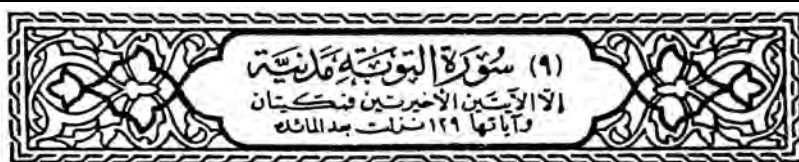 (٩) سُورَة التوبَة مَدنيَّة
إلا الآيتَين الأخيرتَين فمكيتان
وآياتها ١٢٩ نزلت بعد المائدة